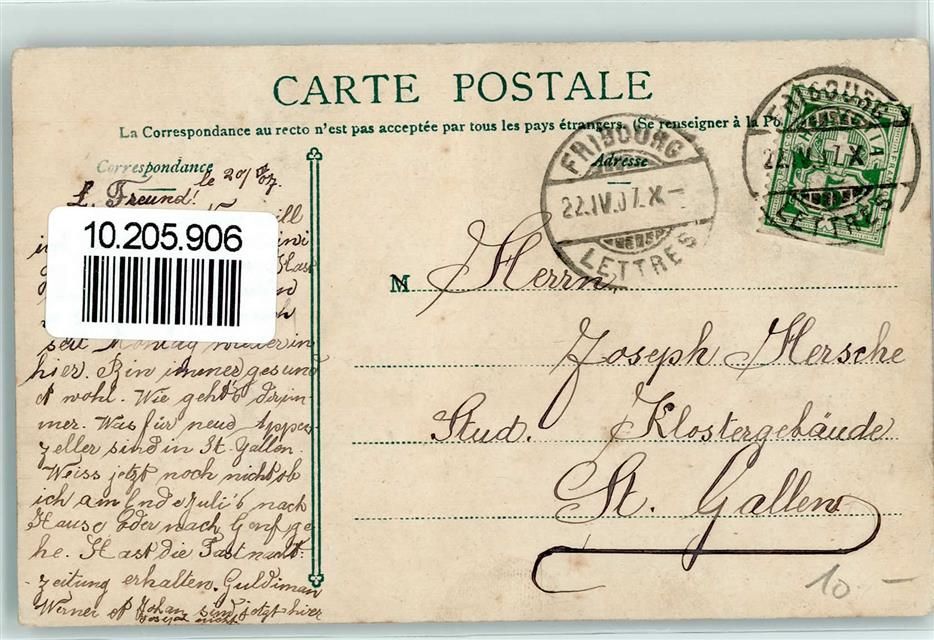 CARTE POSTALE
La Correspondance au recto n'est pas acceptée par tous les pays étrangers. (Se renseigner à la Po
Correspondance
Adresse
FRIBOURG
22.IV.07.X-
LETTRES
FRIBOURG
22.IV.07.X
LETTRES
le 20/ 07.
L. Freund!
ill
Hast
10.205.906
seit Montag wieder in
hier. Bin immer gesund
& wohl. Wie geht's dir im-
mer. Was für neue Appen-
zeller sind in St. Gallen.
Weiss jetzt noch nicht ob
ich am Ende Juli's nach
Hause oder nach Genf ge-
he. Hast die Fastnacht-
zeitung erhalten. Guldiman
Werner & Johan sind jetzt hier
Joseph nicht
M Herrn
Joseph Hersche
Stud. Klostergebäude
St. Gallen
10 -